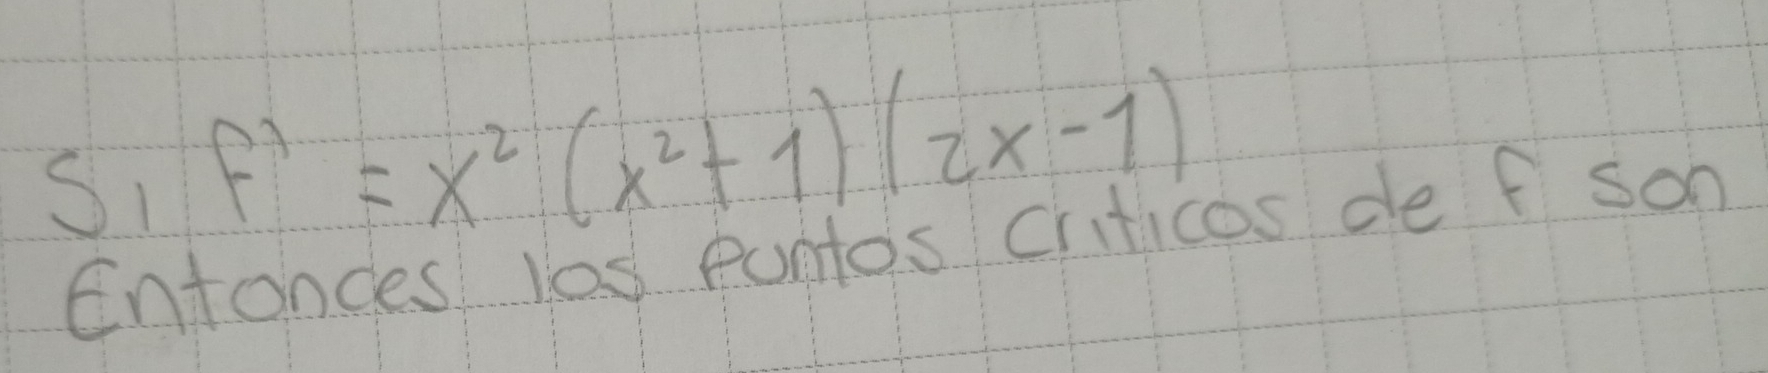 Si f' = x² (x²+1)(2x-1)
Entonces los puntos criticos de f son